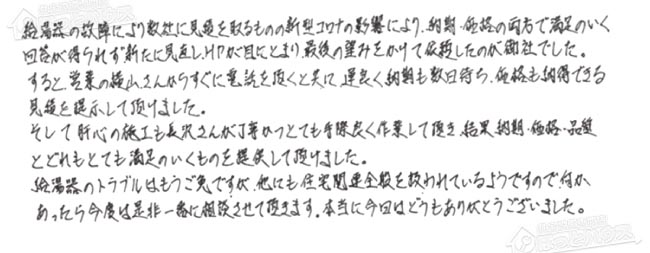 給湯器の故障により数社に見積を取るものの新型コロナの影響により、納期・価格の両方で満足のいく
回答が得られず新たに見直しHPが目にとまり、最後の望みをかけて依頼したのが御社でした。
すると、営業の横山さんからすぐに電話を頂くと共に、運良く納期も数日待ち、価格も納得できる
見積を提示して頂けました。
そして肝心の施工も長沢さんが丁寧かつとても手際良く作業して頂き、結果、納期・価格・品質
とどれもとても満足のいくものを提供して頂けました。
給湯器のトラブルはもうご免ですが、他にも住宅関連全般を扱われているようですので、何か
あったら今度は是非一番に相談させて頂きます。本当に今回はどうもありがとうございました。